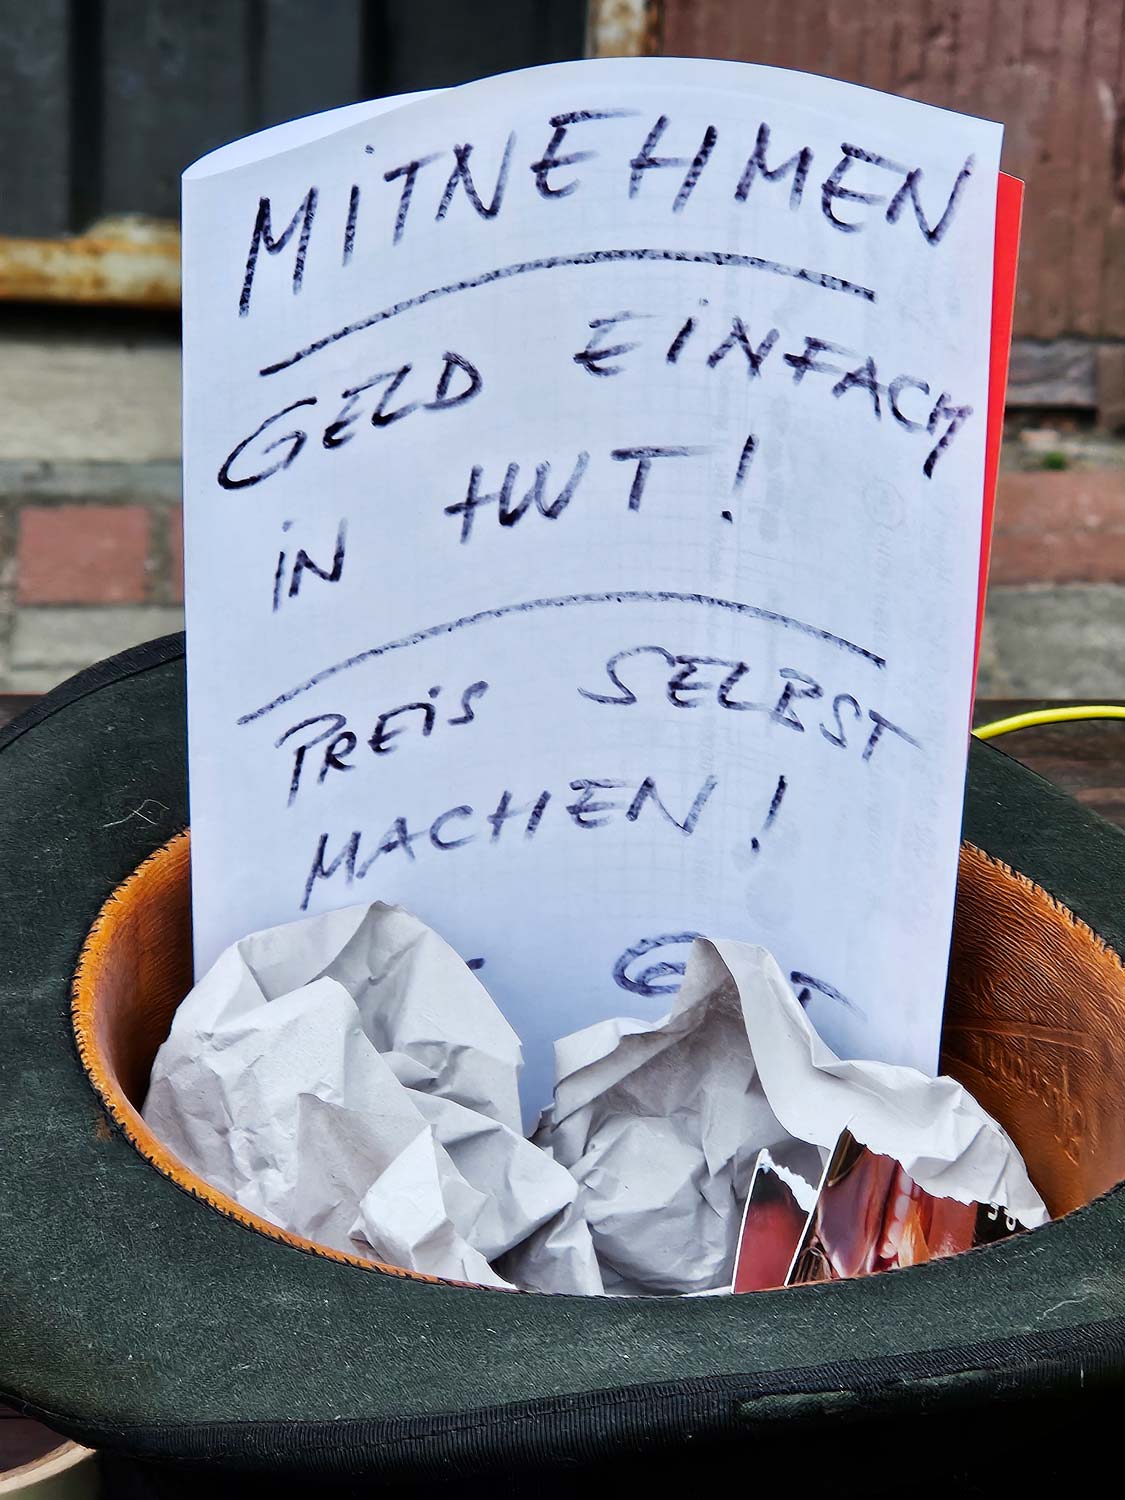 MiTNEHMEN
GELD EiNFACH
iN HUT!
PREiS SELBST
MACHEN!